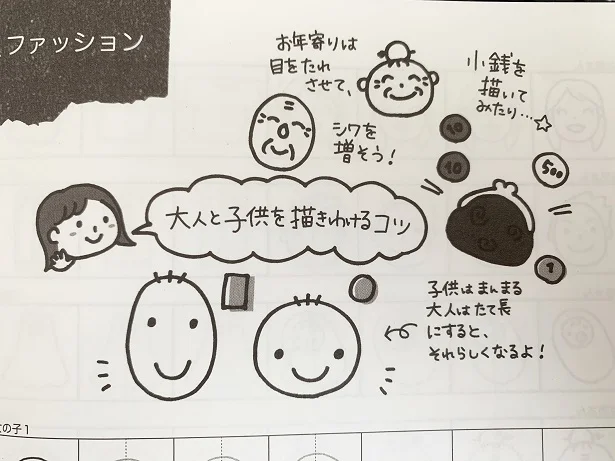 ファッション
お年寄りは
目をたれ
させて、
シワを
増そう！
小銭を
描いて
みたり…☆
10
10
500
1
大人と子供を描きわけるコツ
子供はまんまる
大人はたて長
にすると、
それらしくなるよ！
の子1